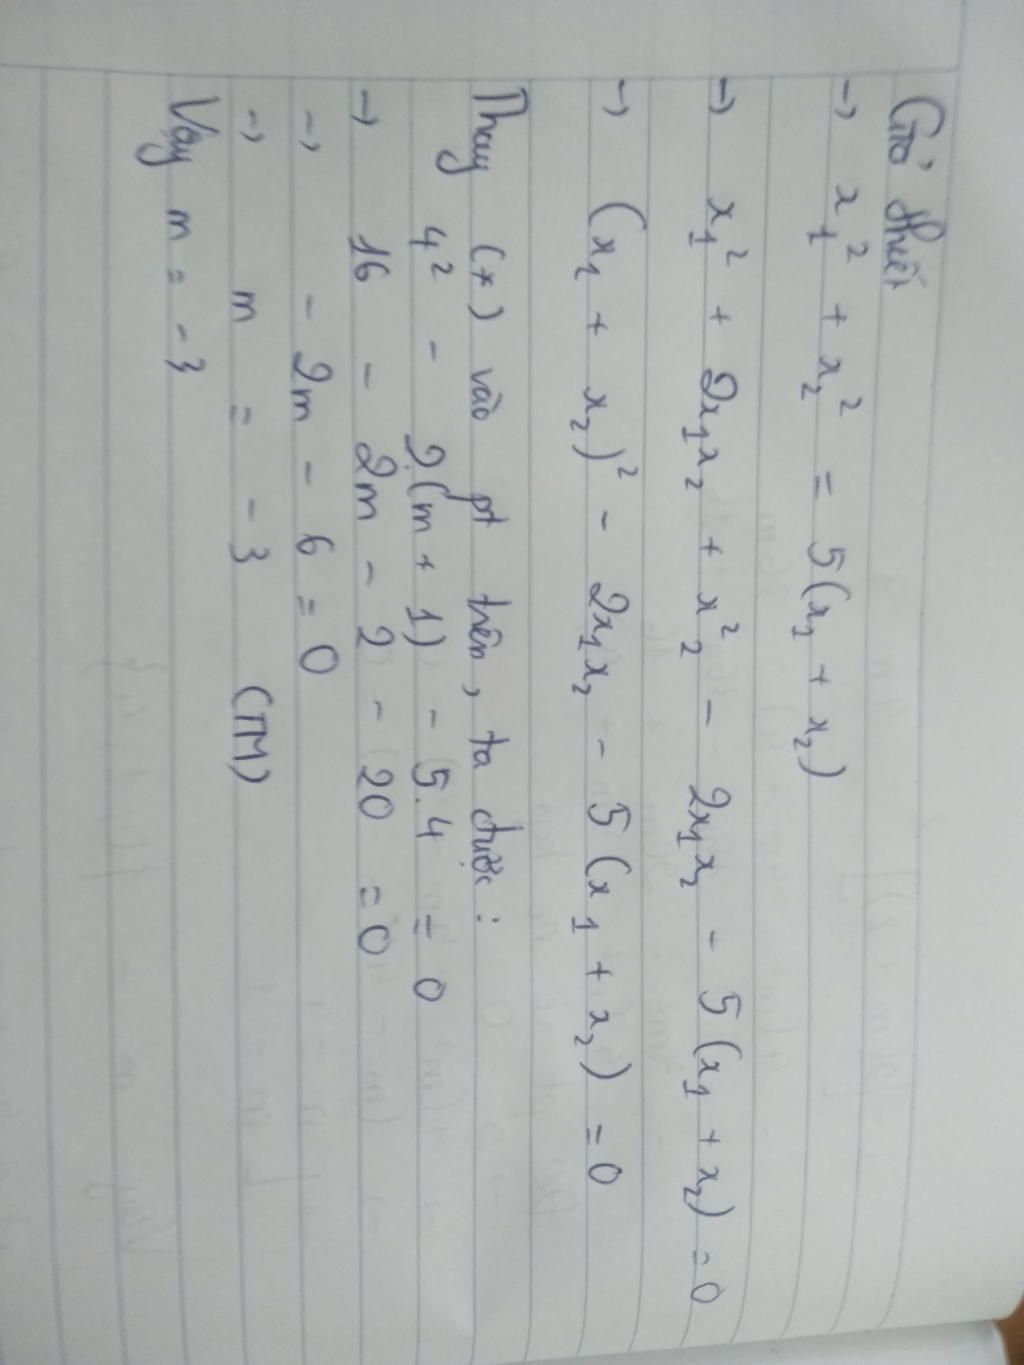 Giả thiết
→ x₁² + x₂² = 5(x₁ + x₂)
→ x₁² + 2x₁x₂ + x₂² - 2x₁x₂ - 5(x₁ + x₂) = 0
→ (x₁ + x₂)² - 2x₁x₂ - 5(x₁ + x₂) = 0
Thay (*) vào pt trên, ta được:
4² - 2.(m + 1) - 5.4 = 0
→ 16 - 2m - 2 - 20 = 0
→ - 2m - 6 = 0
→ m = - 3 (TM)
Vậy m = - 3